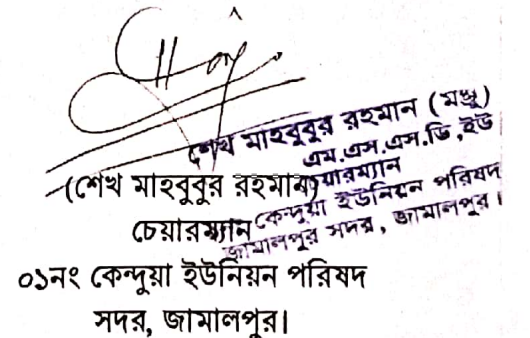 শেখ মাহবুবুর রহমান (মঞ্জু)
এম.এস.এস.ডি,ইউ
চেয়ারম্যান
কেন্দুয়া ইউনিয়ন পরিষদ
জামালপুর সদর, জামালপুর।
(শেখ মাহবুবুর রহমান)
চেয়ারম্যান
০১নং কেন্দুয়া ইউনিয়ন পরিষদ
সদর, জামালপুর।